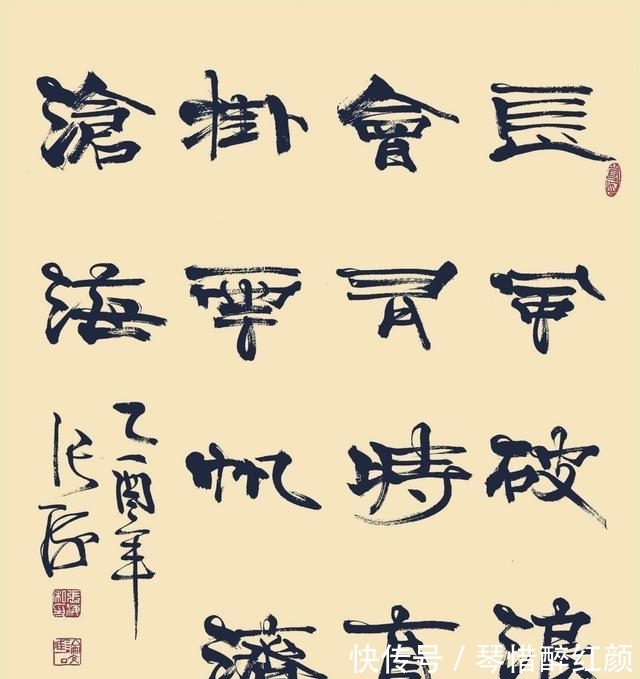 長風破浪
會有時直
掛雲帆濟
滄海
乙酉年
快传号 / 琴惜醉红颜